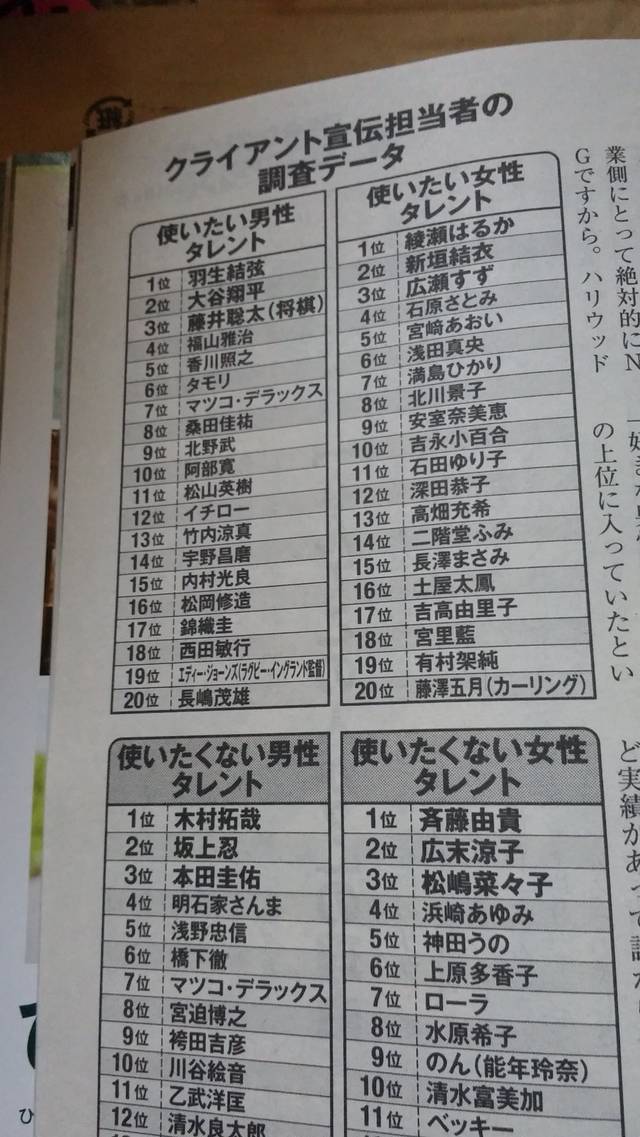 クライアント宣伝担当者の
調査データ
使いたい男性
タレント
1位 羽生結弦
2位 大谷翔平
3位 藤井聡太(将棋)
4位 福山雅治
5位 香川照之
6位 タモリ
7位 マツコ・デラックス
8位 桑田佳祐
9位 北野武
10位 阿部寛
11位 松山英樹
12位 イチロー
13位 竹内涼真
14位 宇野昌磨
15位 内村光良
16位 松岡修造
17位 錦織圭
18位 西田敏行
19位 エディー・ジョーンズ(ラグビー・イングランド監督)
20位 長嶋茂雄
使いたい女性
タレント
1位 綾瀬はるか
2位 新垣結衣
3位 広瀬すず
4位 石原さとみ
5位 宮﨑あおい
6位 浅田真央
7位 満島ひかり
8位 北川景子
9位 安室奈美恵
10位 吉永小百合
11位 石田ゆり子
12位 深田恭子
13位 高畑充希
14位 二階堂ふみ
15位 長澤まさみ
16位 土屋太鳳
17位 吉高由里子
18位 宮里藍
19位 有村架純
20位 藤澤五月(カーリング)
使いたくない男性
タレント
1位 木村拓哉
2位 坂上忍
3位 本田圭佑
4位 明石家さんま
5位 浅野忠信
6位 橋下徹
7位 マツコ・デラックス
8位 宮迫博之
9位 袴田吉彦
10位 川谷絵音
11位 乙武洋匡
12位 清水良太郎
使いたくない女性
タレント
1位 斉藤由貴
2位 広末涼子
3位 松嶋菜々子
4位 浜崎あゆみ
5位 神田うの
6位 上原多香子
7位 ローラ
8位 水原希子
9位 のん(能年玲奈)
10位 清水富美加
11位 ベッキー
業側にとって絶対的にN
Gですから。ハリウッド
の上位に入っていたとい
ど実績があって
ひ